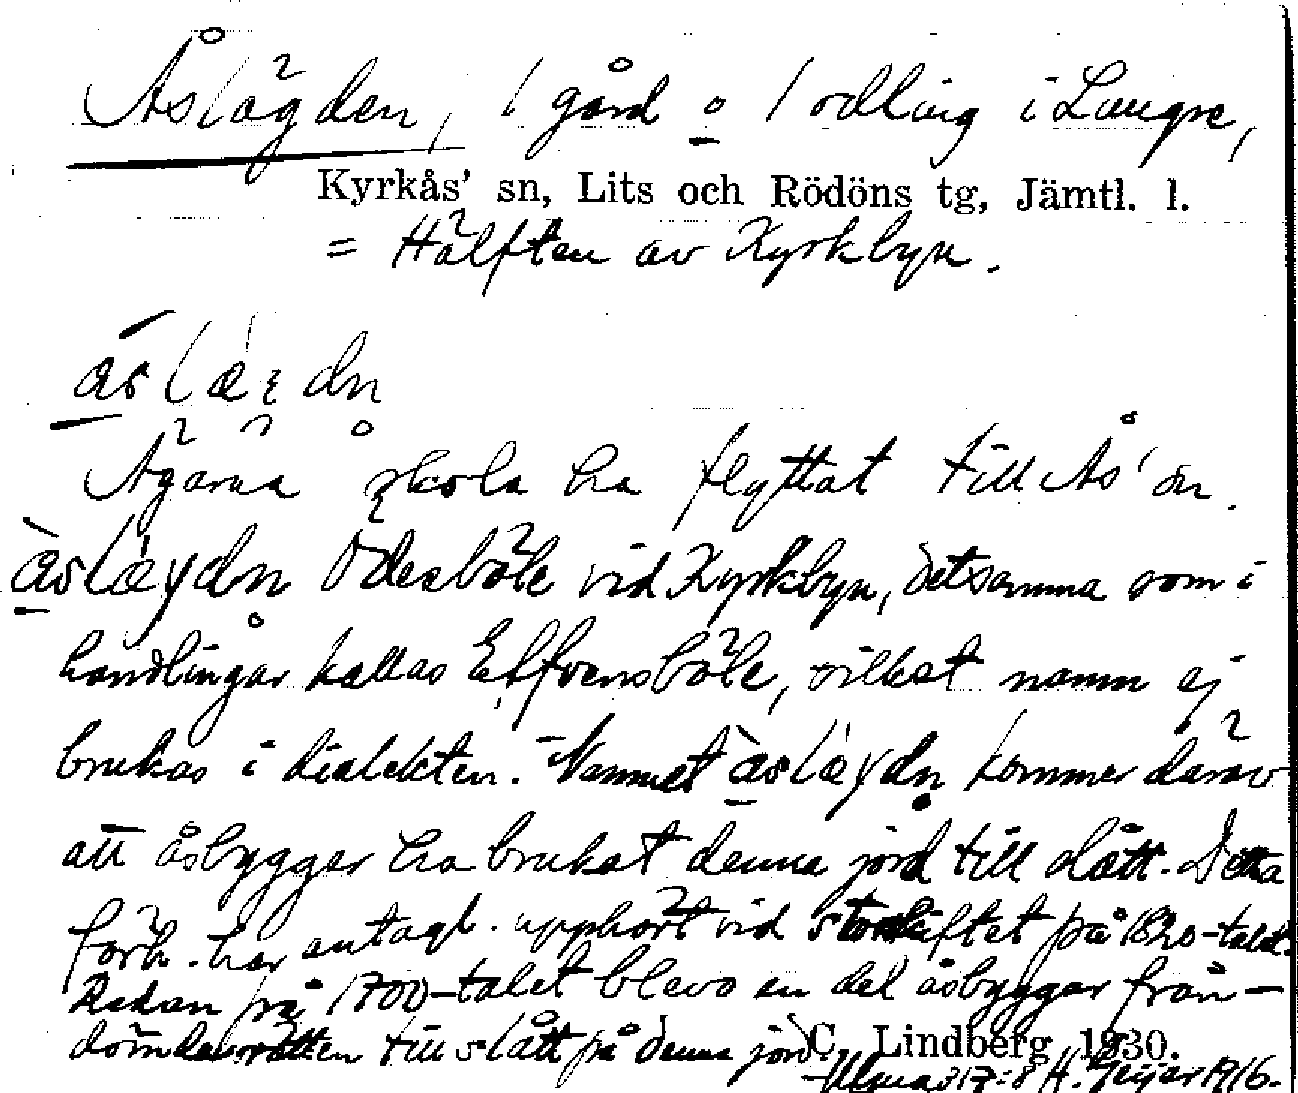 Åslägden, 1 gård o 1 odling i Lungre,
Kyrkås' sn, Lits och Rödöns tg, Jämtl. l.
= Hälften av Kyrkbyn.
Ägarna skola ha flyttat till Ås' sn.
Ödesböle vid Kyrkbyn, detsamma som i
handlingar kallas Elfvensböle, vilket namn ej
brukas i dialekten. Namnet kommer därav
att åsbyggar ha brukat denna jord till slått. Detta
förh. har antagl. upphört vid storskiftet på 1820-talet.
Redan på 1700-talet blevo en del åsbyggar från-
dömda rätten till slått på denna jord.
C. Lindberg 1930.
Ulma 317:8 H. Geijer 1916.